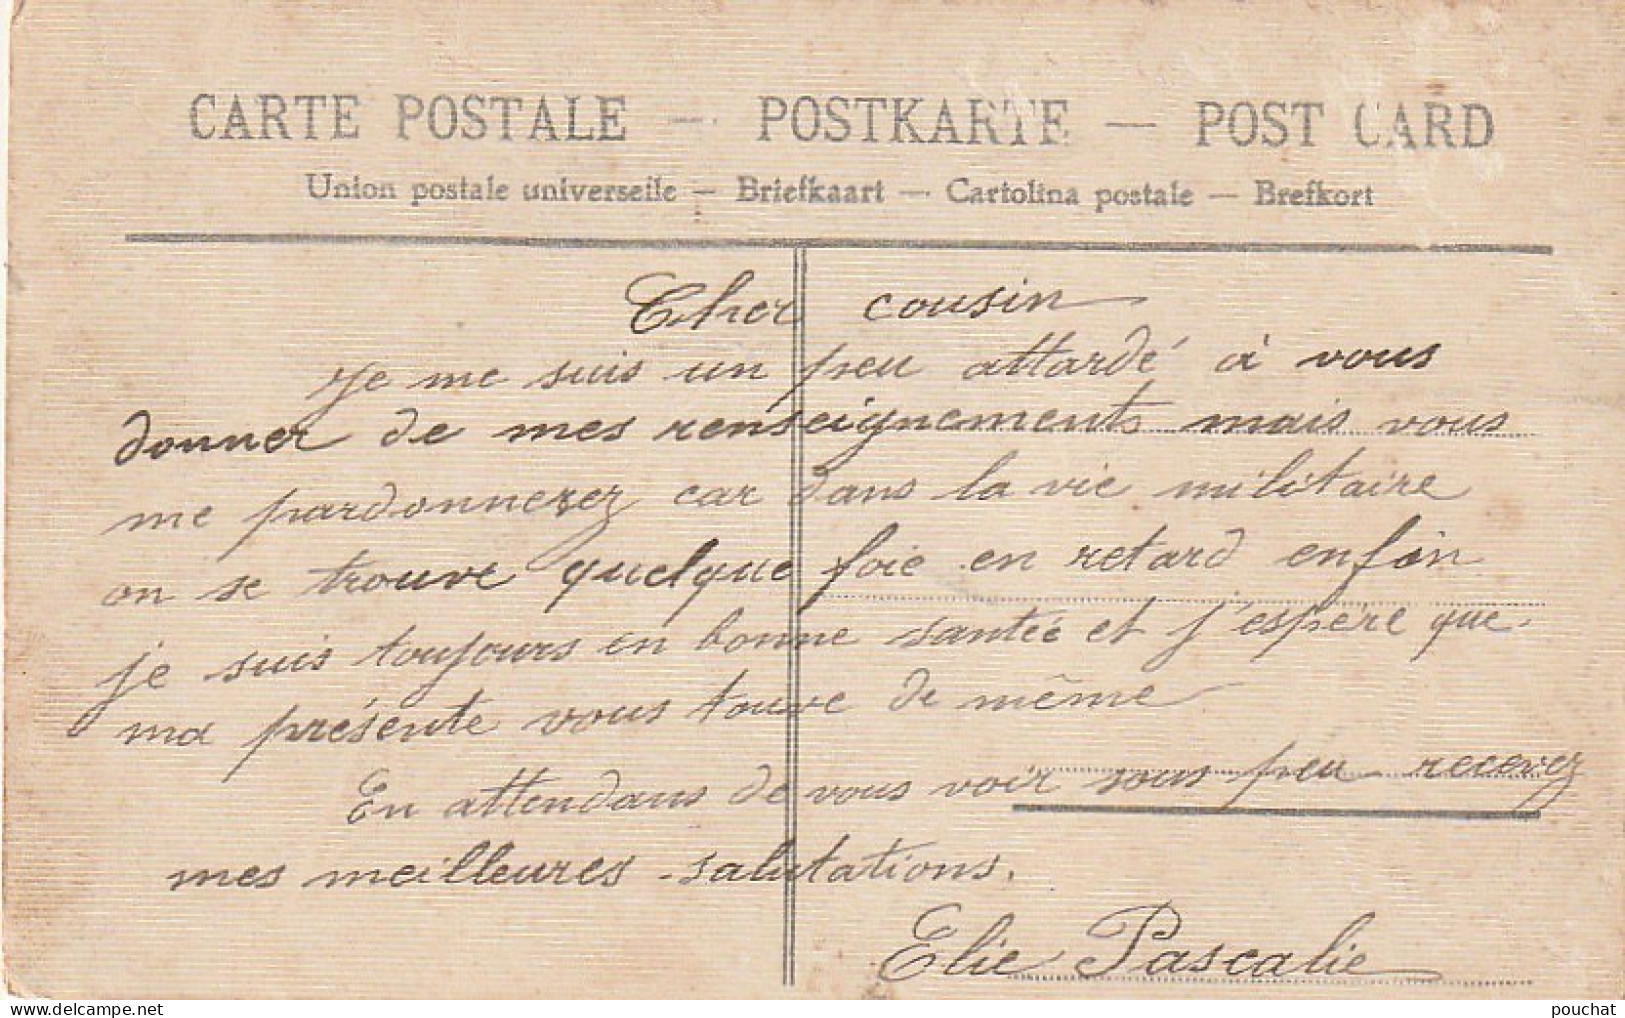 CARTE POSTALE — POSTKARTE — POST CARD
Union postale universelle — Briefkaart — Cartolina postale — Brefkort
Cher cousin
Je me suis un peu attardé à vous
donner de mes renseignements mais vous
me pardonnerez car dans la vie militaire
on se trouve quelque foie en retard enfin
je suis toujours en bonne santée et j'espère que
ma présente vous touve de même
En attendans de vous voir sous peu recevez
mes meilleures salutations.
Elie Pascalie
pouchat